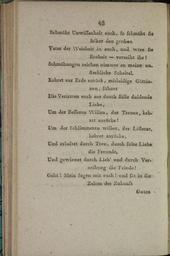 48
Schmäht Unwissenheit euch, so schmäht sie
selber den großen
Vater der Weisheit in euch, und wenn sie
Bosheit — verzeiht ihr!
Schmähungen reichen nimmer an meine un-
sterbliche Scheitel.
Kehret zur Erde zurück, mitleidige Göttin-
nen, führet
Die Verirrten euch nur durch süße duldende
Liebe,
Um der Besseren Willen, der Treuen, keh-
ret zurücke!
Um der Schlimmsten willen, der Lästrer,
kehret zurücke,
Und erhaltet durch Treu, durch süße Liebe
die Freunde,
Und gewinnet durch Lieb' und durch Ver-
zeihung die Feinde!
Geht! Mein Segen mit euch! und sä't in die
Zeiten der Zukunft